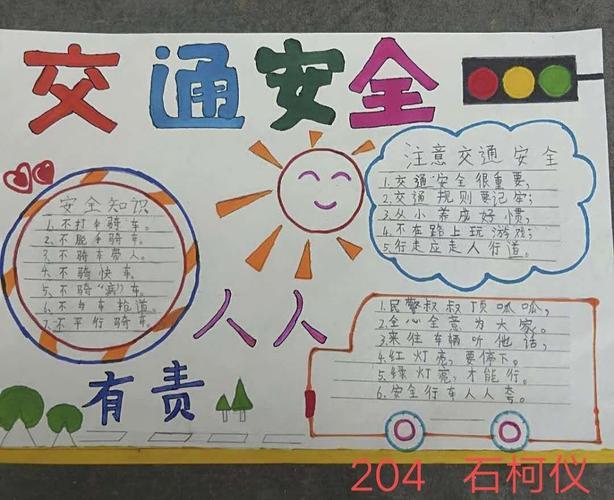 交通安全
注意交通安全
1.交通安全很重要;
2.交通规则要记牢;
3.从小养成好惯;
4.不在路上玩游戏;
5.行走应走人行道。
安全知识
1.不打伞骑车。
2.不脱手骑车。
3.不骑车带人。
4.不骑快车。
5.不骑“病”车。
6.不与车抢道。
7.不平行骑车。
人人
有责
1.民警叔叔顶呱呱,
2.全心全意为大家。
3.来往车辆听他话,
4.红灯亮,要停下。
5.绿灯亮,才能行。
6.安全行车人人夸。
204 石柯仪